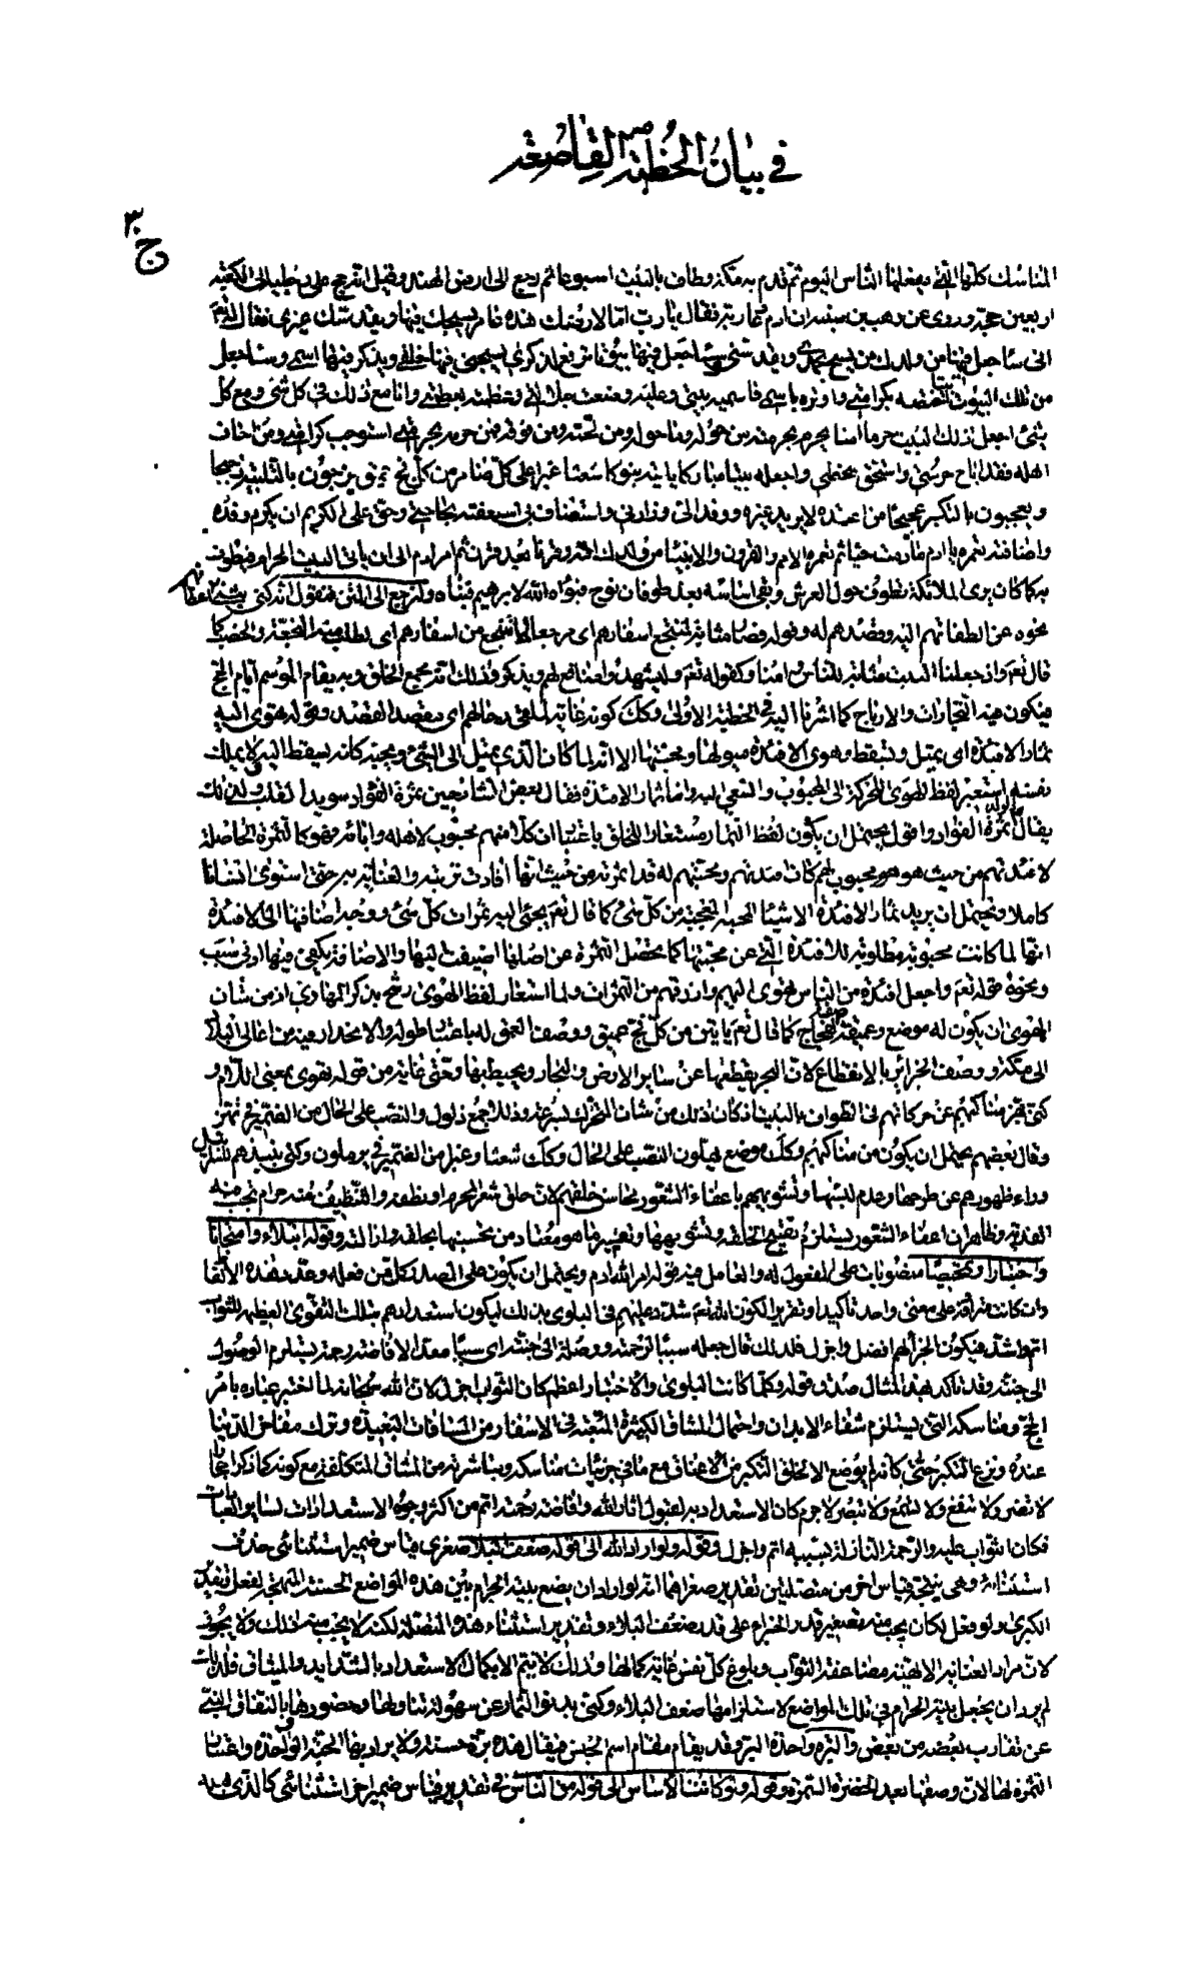 في بيان الخطبة القاصعة
ج ٣
المناسك كلها التي يفعلها الناس اليوم ثم قدم به مكة وطاف بالبيت اسبوعا ثم رجع الى ارض الهند وقيل انه حج على رجليه الى الكعبة
اربعين حجة وروى عن وهب بن منبه ان ادم فقال يا رب اما لارضك هذه عامر يسبحك فيها ويقدسك غيرى فقال الله تعالى
انى ساجعل فيها من ولدك من يسبح بحمدى ويقدسنى وساجعل فيها بيوتا ترفع لذكرى يسبحنى فيها خلقى ويذكر فيها اسمى وساجعل
من تلك البيوت بيتا اختصه بكرامتى واوثره باسمى فاسميه بيتى وعليه وضعت جلالتى وعظمته بعظمتى وانا مع ذلك فى كل شئ ومع كل
شئ اجعل ذلك البيت حرما امنا يحرم بحرمته من حوله وما حوله ومن تحته ومن فوقه فمن حرمه بحرمتى استوجب كرامتى ومن اخاف
اهله فقد اباح حرمتى واستحق سخطى واجعله بيتا مباركا ياتيه بنوك شعثا غبرا على كل ضامر من كل فج عميق يزجون بالتلبية زجيجا
ويعجون بالتكبير عجيجا من اعتمده لا يريد غيره ووفد الى وزارنى واستضاف بى اسعفته بحاجته وحق على الكريم ان يكرم وفده
واضيافه تعمره يا ادم ما دمت حيا ثم تعمره الامم والقرون والانبياء من ولدك امة بعد امة وقرنا بعد قرن ثم امر ادم الى ان ياتى البيت الحرام فيطوف
به كما كان يرى الملائكة تطوف حول العرش وبقى اساسه بعد طوفان نوح فبواه الله لابراهيم فبناه ولنرجع الى المتن فنقول انه كنى بثنى اعطافهم
نحوه عن التفاتهم اليه وقصدهم له وقوله فصار مثابة لمنتجع اسفارهم اى مرجعا لما تنجع من اسفارهم اى لطلب منه النجعة والخصب كما
قال تعالى واذ جعلنا البيت مثابة للناس وامنا وكقوله تعالى ليشهدوا منافع لهم ويذكروا وذلك انه مجمع الخلق وبه يقام الموسم ايام الحج
فيكون فيه التجارات والارباح كما اشرنا اليه فى الخطبة الاولى وكك كونه غاية لملقى رحالهم اى مقصد القصد وقوله تهوى اليه
ثمار الافئدة اى تميل وتسقط وهوى الافئدة ميولها ومحبتها الا انه لما كان الذى يميل الى الشئ ويحبه كانه يسقط اليه ولا يملك
نفسه استعير لفظ الهوى للحركة الى المحبوب والسعى اليه واما ثمار الافئدة فقال بعض الشارحين ثمرة الفؤاد سويداء القلب ولذلك
يقال للولد ثمرة الفؤاد واقول يحتمل ان يكون لفظ الثمار مستعارا للخلق باعتبار ان كلا منهم محبوب لاهله وابائه فهو كالثمرة الحاصلة
لافئدتهم من حيث هو محبوب لهم كان افئدتهم ومحبتهم له قد اثمرته من حيث انها افادت تربيته والعناية به حتى استوى انسانا
كاملا ويحتمل ان يريد بثمار الافئدة الاشياء المجبية المعجبة من كل شئ كما قال تعالى يجبى اليه ثمرات كل شئ ووجه اضافتها الى الافئدة
انها لما كانت محبوبة مطلوبة للافئدة التى عن محبتها كما تحصل الثمرة عن اصلها اضيفت اليها والاضافة يكفى فيها ادنى سبب
ونحوه قوله تعالى واجعل افئدة من الناس تهوى اليهم وارزقهم من الثمرات ولما استعار لفظ الهوى رشح بذكر المهاوى اذ من شان
الهوى ان يكون له موضع وعميقة صفة لفجاج كما قال تعالى ياتين من كل فج عميق ووصف العمق له باعتبار طوله والانحدار فيه من اعالى البلاد
الى مكة ووصف الجزائر بالانقطاع لان البحر يقطعها عن سائر الارض والبحار ويحيط بها وحتى غاية من قوله تهوى بمعنى اللام و
كنى بهز مناكبهم عن حركاتهم فى الطواف بالبيت اذ كان ذلك من شان المتحرك بسرعة وذللا جمع ذلول والنصب على الحال من الضمير فى يهزوا
وقال بعضهم يحتمل ان يكون من مناكبهم وكك موضع يهلون النصب على الحال وكك شعثا وغبرا من الضمير فى يرملون وكنى بنبذهم للسرابيل
وراء ظهورهم عن طرحها وعدم لبسها وتشويههم باعفاء الشعور محاسن خلقهم لان حلق شعر المحرم او نطفه والتنظيف منه حرام تجب فيه
الفدية وظاهر ان اعفاء الشعور يستلزم تقبيح الخلقة وتشويهها وتغيير ما هو معتاد من تحسينها بحلقه وازالته وقوله ابتلاء وامتحانا
واختبارا وتمحيصا منصوبات على المفعول له والعامل فيه قوله امر الله ادم ويحتمل ان يكون على المصدر كل من فعله وعدد هذه الالفاظ
وان كانت مترادفة على معنى واحد تاكيدا وتقريرا لكون الله تعالى شدد عليهم فى البلوى بذلك ليكون استعدادهم بتلك التقوى العظيمة للثواب
اتم واشد فيكون الجزاء لهم افضل واجزل فلذلك قال جعله سببا لرحمته ووصلة الى جنته اى سببا معدا لافاضة رحمة يستلزم الوصول
الى جنته وقد تاكد بهذا المثال صدق قوله وكلما كانت البلوى والاختبار اعظم كان الثواب اجزل لان الله سبحانه لما اختبر عباده بامر
الحج ومناسكه التى يستلزم شقاء الابدان واحتمال المشاق الكثيرة المتعبة فى الاسفار من المسافات البعيدة وترك مفاخر الدنيا
عنده ونزع التكبر حتى كانه لم يوضع الا لخلق التكبر من الاعناق مع ما فى جزئيات مناسكه ومباشرته من المشاق المتكلفة مع كونه كما ذكر احجارا
لا تضر ولا تنفع ولا تسمع ولا تبصر لا جرم كان الاستعداد به لقبول اثار الله وافاضة رحمته اتم من اكثر وجوه الاستعدادات لسائر العبادات
فكان الثواب عليه والرحمة النازلة بسببه اتم واجزل وقوله ولو اراد الله الى قوله ضعف البلاء صغرى قياس ضمير استثنائى حذف
استثناءه وهى نتيجة قياس اخر من متصلتين تقدير صغراهما انه لو اراد ان يضع بيته الحرام بين هذه المواضع الحسنة المبهجة لفعل وتقدير
الكبرى ولو فعل لكان يجب منه تصغير قدر الجزاء على قدر ضعف البلاء وتقدير استثناء هذه المتصلة لكنه لا يجب منه ذلك ولا يجوز
لان مراد العناية الالهية مضاعفة الثواب وبلوغ كل نفس غاية كمالها وذلك لا يتم الا بكمال الاستعداد بالشدايد والميثاق فلذلك
لم يرد ان يجعل بيته الحرام فى تلك المواضع لاستلزامها ضعف البلاء وكنى بدنو الثمار عن سهولة تناولها وحضورها بالتفاف البنى
عن تقارب بعضه من بعض والبرة واحدة البر وقد يقام مقام اسم الجنس فيقال هذه برة حسنة ولا يراد بها الحبة الواحدة واعتبار
الثمرة لها لان وصفها بعد الخضرة الثمرة وقوله ولو كانت الاساس الى قوله من الناس فى تقدير قياس ضمير اخر استثنائى كالذى قبله